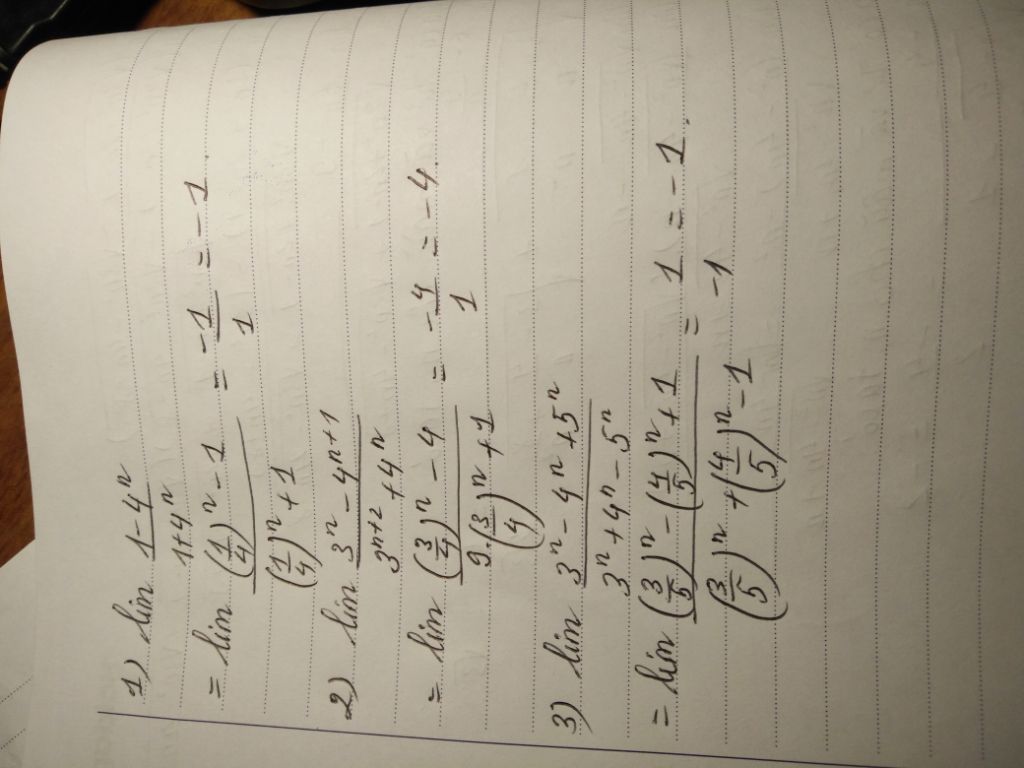 1) lim (1-4^n)/(1+4^n)
= lim ((1/4)^n - 1)/((1/4)^n + 1) = -1/1 = -1.
2) lim (3^n - 4^{n+1})/(3^{n+2} + 4^n)
= lim ((3/4)^n - 4)/(9.(3/4)^n + 1) = -4/1 = -4.
3) lim (3^n - 4^n + 5^n)/(3^n + 4^n - 5^n)
= lim ((3/5)^n - (4/5)^n + 1)/((3/5)^n + (4/5)^n - 1) = 1/-1 = -1.